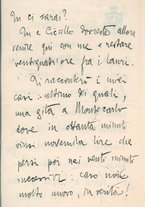 In ci sarai?
In e Cicillo dovreste allora
venire qui con me e restare
ventiquattr'ore fra i lauri.
Ti racconterò i miei
casi: ultimo dei quali,
una gita a Montecarlo
dove in ottanta minuti
vinsi novemila lire che
persi poi nei venti minuti
successivi. caso non
molto nuovo, in verità!